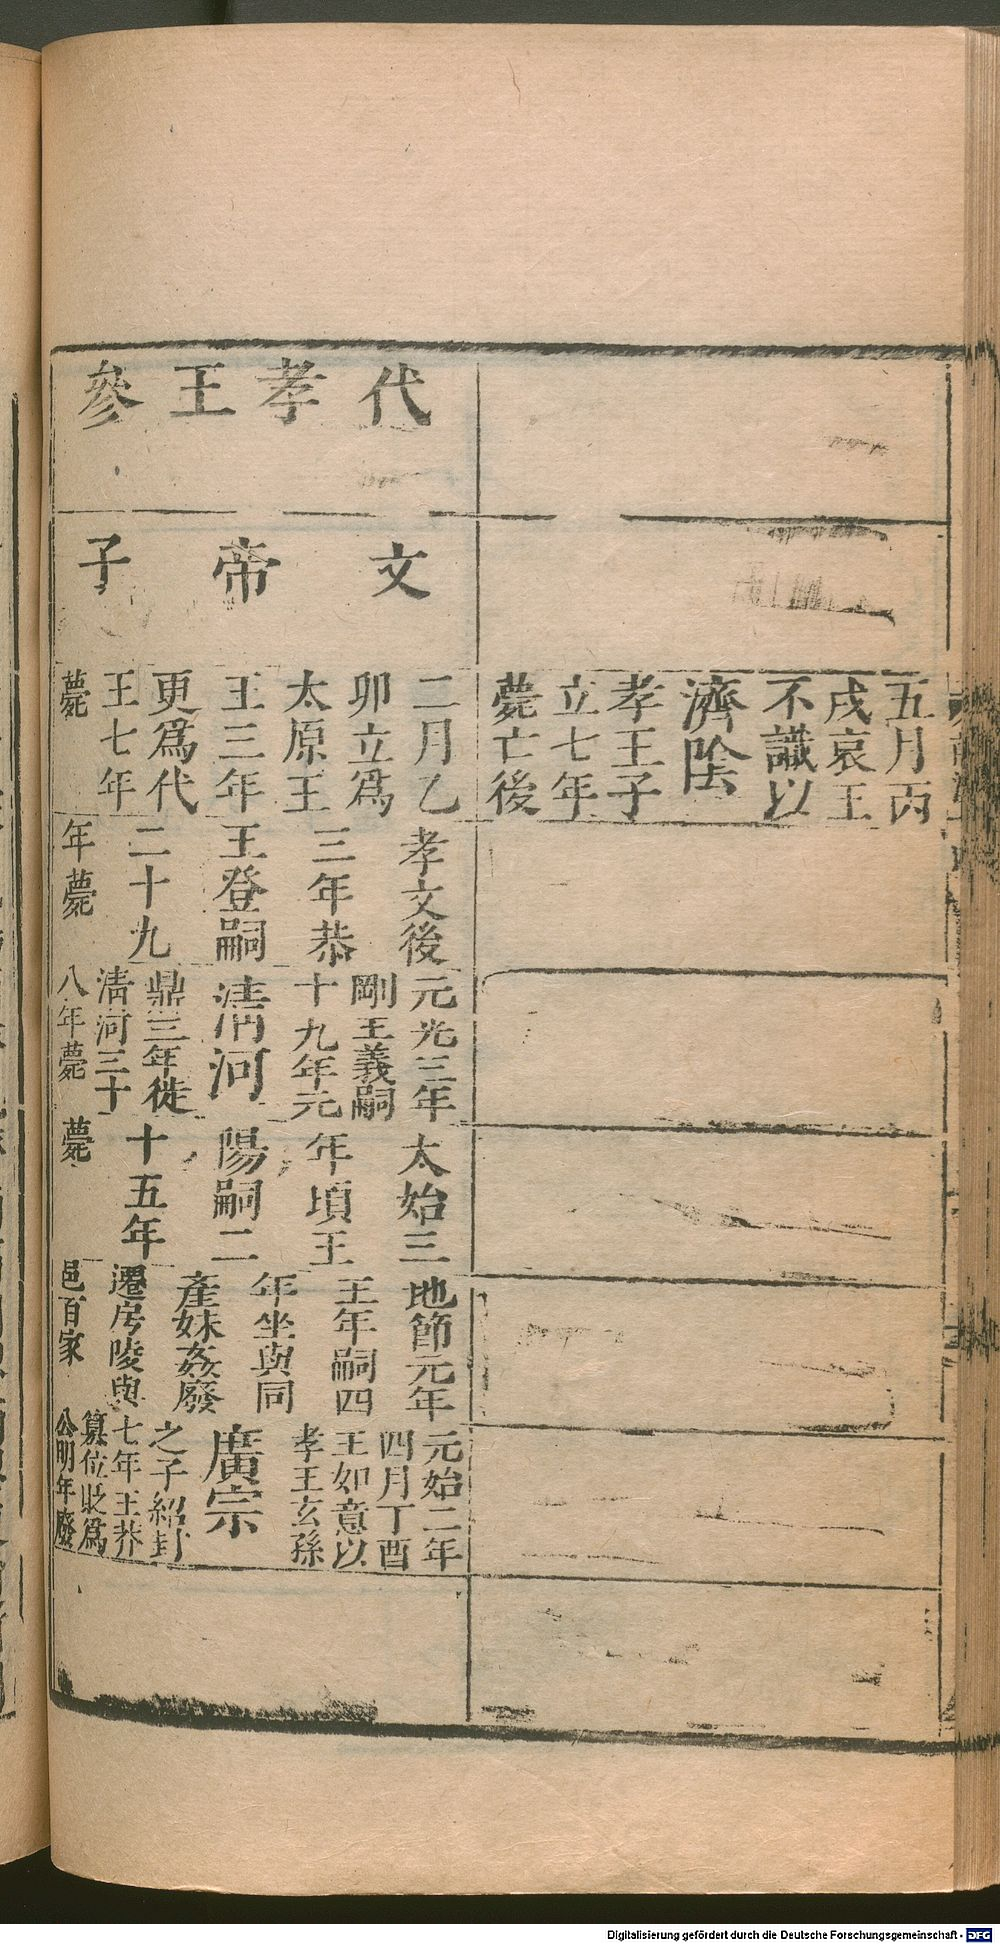 五月丙
戌哀王
不識以
濟陰
孝王子
立七年
薨亡後
代孝王參
文帝子
二月乙
卯立爲
太原王
王三年
更爲代
王七年
薨
孝文後
三年恭
王登嗣
二十九
年薨
元光三年
剛王義嗣
十九年元
清河
鼎三年徙
清河三十
八年薨
太始三
年頃王
陽嗣二
十五年
薨
地節元年
王年嗣四
年坐與同
產妹姦廢
遷房陵與
邑百家
元始二年
四月丁酉
王如意以
孝王玄孫
廣宗
之子紹封
七年王莽
篡位貶爲
公明年廢
Digitalisierung gefördert durch die Deutsche Forschungsgemeinschaft - DFG